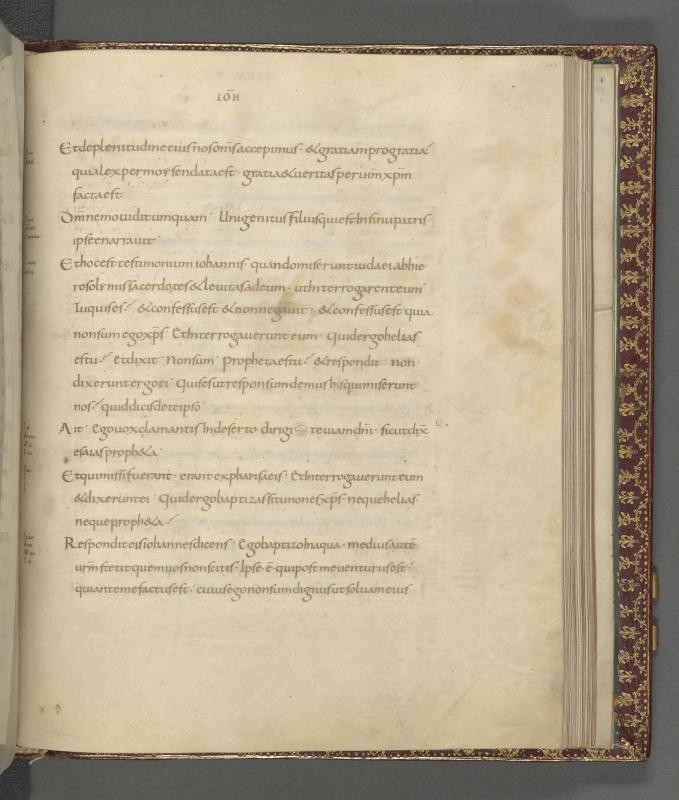 IOH̄
Et deplenitudine eius nos om̄s accepimus · & gratiam pro gratia
quia lex per moysen data est · gratia & ueritas per ih̄m xp̄m
facta est
Dm̄ nemo uidit umquam · Unigenitus filius qui est In sinu patris ·
ipse enarrauit ·
Et hoc est testimonium iohannis · quando miserunt iudaei abhie
rosolymis sacerdotes & leuitas ad eum · ut Interrogarent eum
Tu quis es · & confessus est & non negauit · & confessus est quia
non sum ego xp̄s · Et Interrogauerunt eum · Quid ergo helias
es tu · Et dixit · Non sum · Propheta es tu · & respondit · non ·
dixerunt ergo ei · Quis es ut responsum demus his qui miserunt
nos · quid dicis de te ipso
Ait · Ego uox clamantis In deserto dirigi te uiam dn̄i · sicut dix̄
esaias proph&a ·
Et qui missi fuerant · erant ex pharisaeis · Et Interrogauerunt eum
& dixerunt ei · Quid ergo baptizas si tu non es xp̄s · neque helias ·
neque proph&a ·
Respondit eis iohannes dicens · Ego baptizo In aqua · medius autē
ur̄m stetit quem uos non scitis · Ipse · ē · qui post me uenturus est ·
qui ante me factus est · cuius ego non sum dignus ut soluam eius